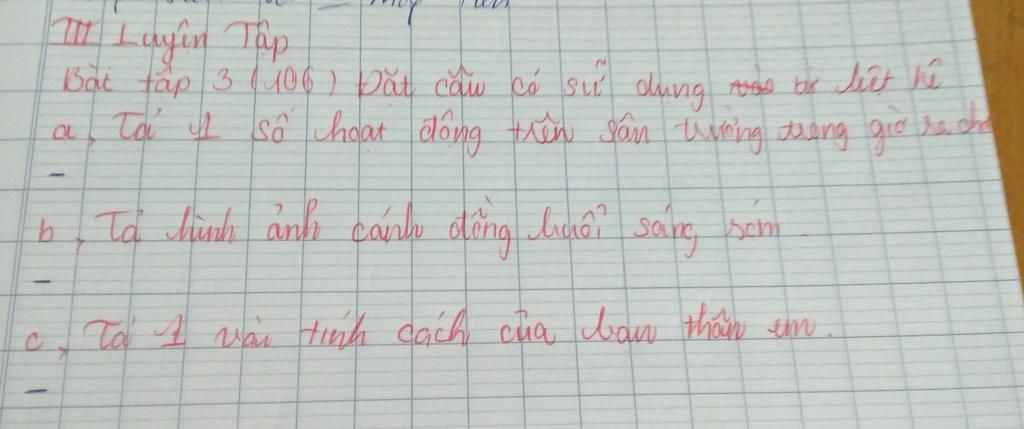 III Luyện Tập
Bài tập 3 (106) Đặt câu có sử dụng liệt kê
a, Tả 1 số hoạt động trên sân trường trong giờ ra chơ
-
b, Tả hình ảnh cánh đồng buổi sáng sớm
-
c, Tả 1 vài tính cách của bạn thân em.
-